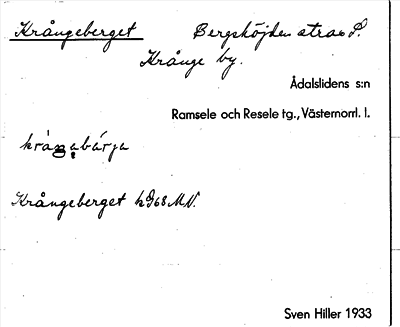 Krångeberget Bergshöjden strax S.
Krånge by.
Ådalslidens s:n
Ramsele och Resele tg., Västernorrl. l.
Krångeberget h 968 M.N.
Sven Hiller 1933